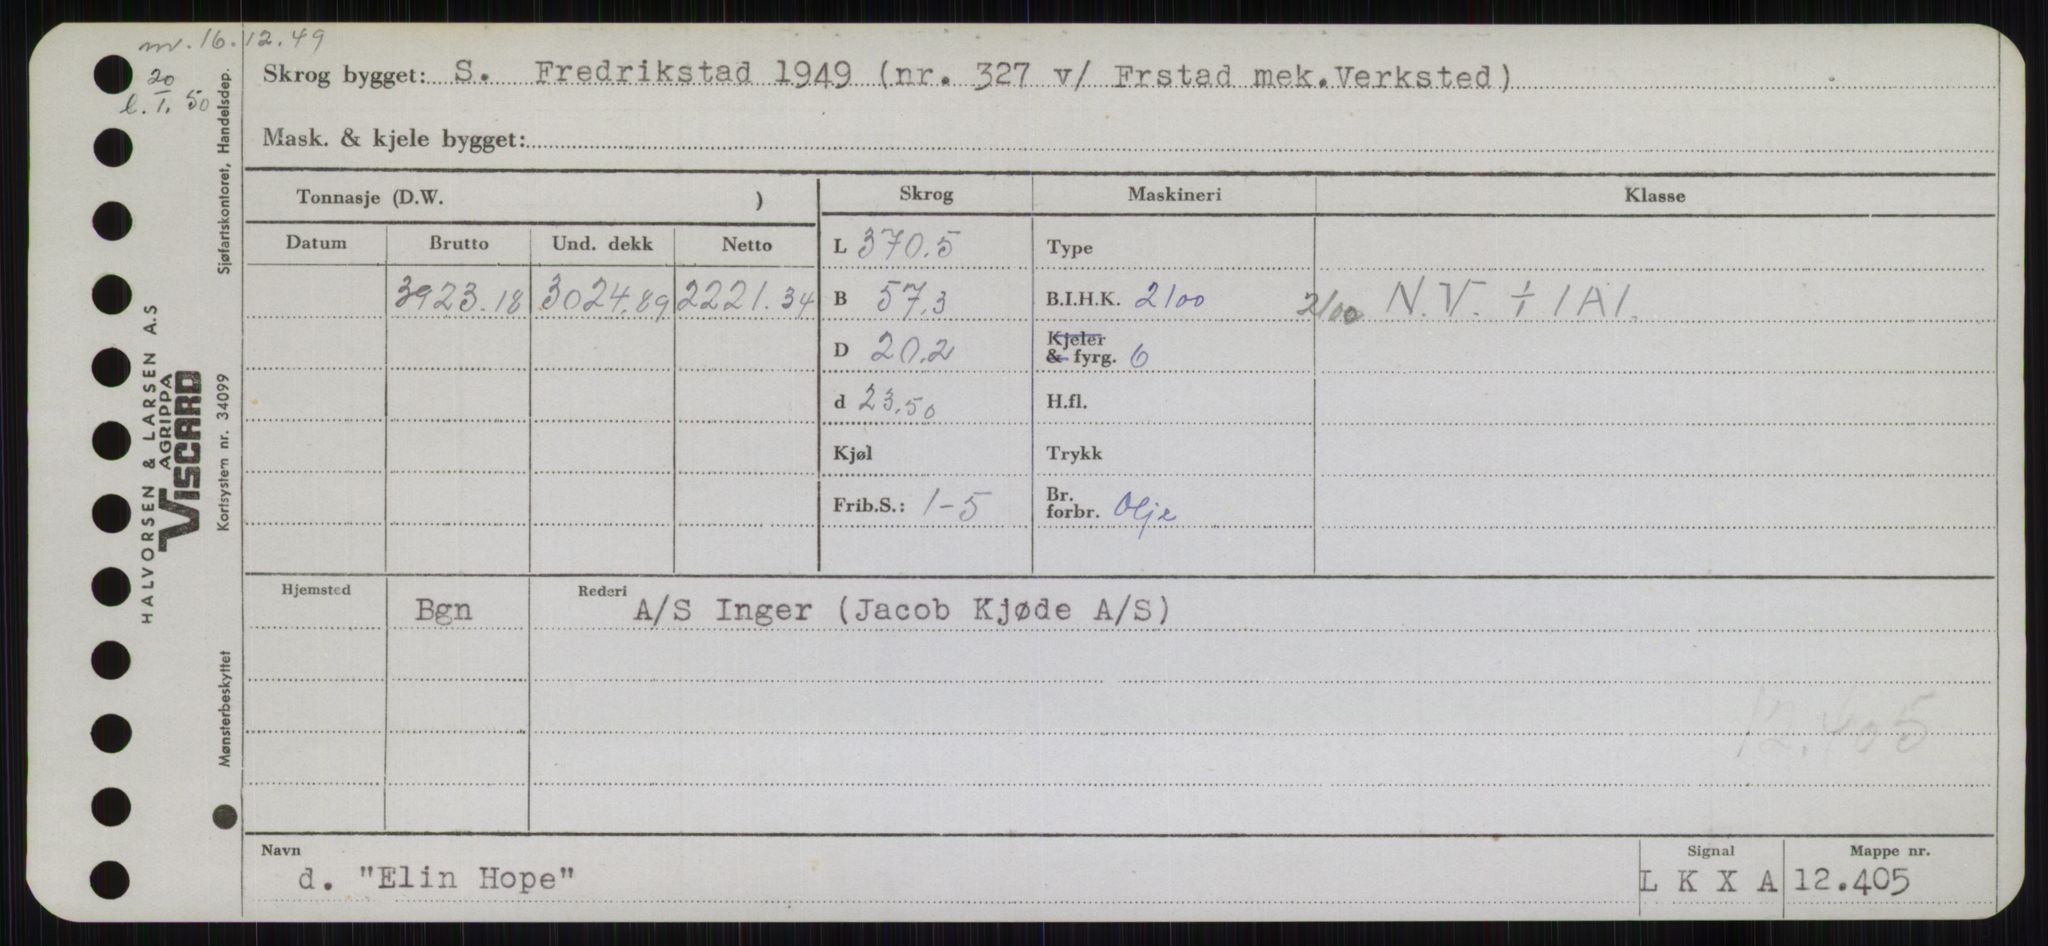 m. 16.12.49
20
l. I. 50
Skrog bygget: S. Fredrikstad 1949 (nr. 327 v/ Frstad mek.Verksted)
Mask. & kjele bygget:
Tonnasje (D.W. )
Skrog
Maskineri
Klasse
Datum
Brutto
Und. dekk
Netto
L 370.5
Type
3923.18
3024.89
2221.34
B 57.3
B.I.H.K. 2100
2100 N.V. ⸓ 1A1.
D 20.2
Kjeler
& fyrg. 6
d 23.50
H.fl.
Kjøl
Trykk
Frib.S.: 1-5
Br.
forbr. Olje
Hjemsted
Bgn
Rederi
A/S Inger (Jacob Kjøde A/S)
12.405
Navn
d. "Elin Hope"
Signal
L K X A
Mappe nr.
12.405
HALVORSEN & LARSEN A.S
AGRIPPA
VISCARD
Mønsterbeskyttet
Kortsystem nr. 34099
Sjøfartskontoret, Handelsdep.